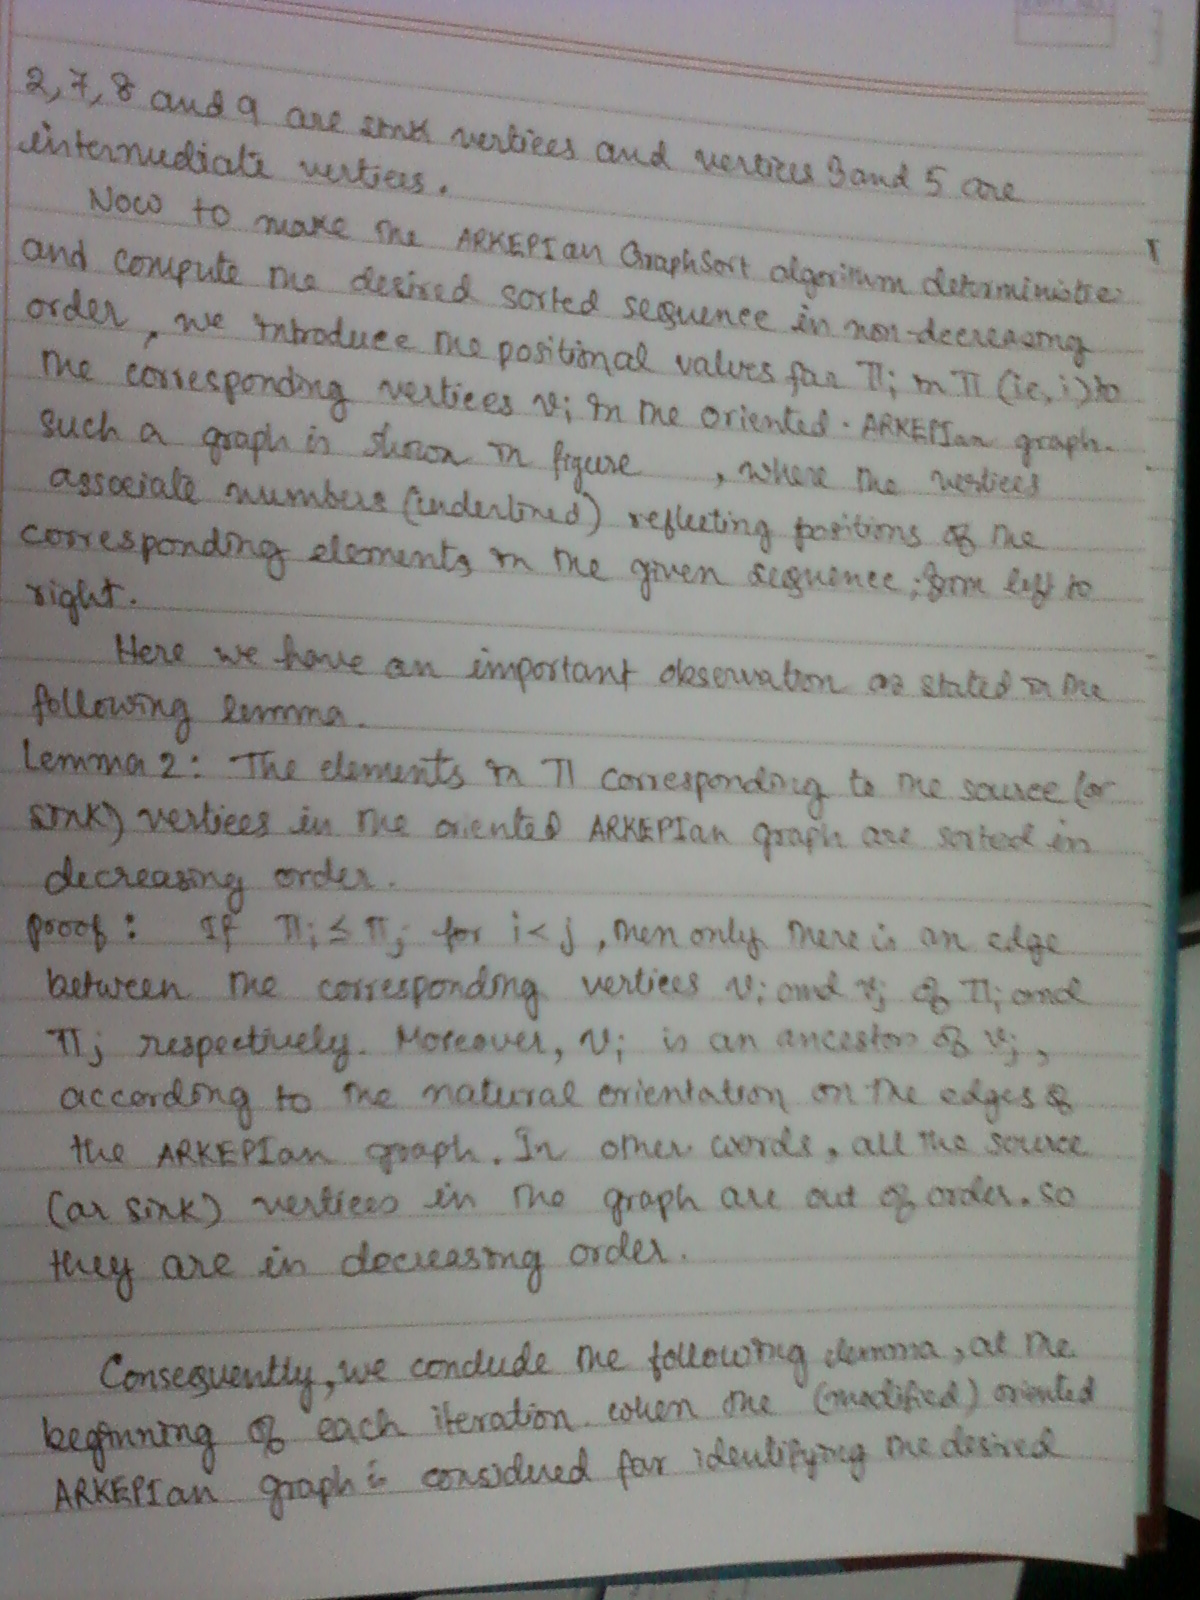 2, 7, 8 and 9 are sink vertices and vertices 3 and 5 are
intermediate vertices.
Now to make the ARKEPIan GraphSort algorithm deterministic
and compute the desired sorted sequence in non-decreasing
order, we introduce the positional values for Πi in Π (ie, i) to
the corresponding vertices vi in the oriented ARKEPIan graph.
such a graph is shown in figure , where the vertices
associate numbers (underlined) reflecting positions of the
corresponding elements in the given sequence, from left to
right.
Here we have an important observation as stated in the
following lemma.
Lemma 2: The elements in Π corresponding to the source (or
sink) vertices in the oriented ARKEPIan graph are sorted in
decreasing order.
proof: If Πi ≤ Πj for i < j, then only there is an edge
between the corresponding vertices vi and vj of Πi and
Πj respectively. Moreover, vi is an ancestor of vj,
according to the natural orientation on the edges of
the ARKEPIan graph. In other words, all the source
(or sink) vertices in the graph are out of order. so
they are in decreasing order.
Consequently, we conclude the following lemma, at the
beginning of each iteration when the (modified) oriented
ARKEPIan graph is considered for identifying the desired